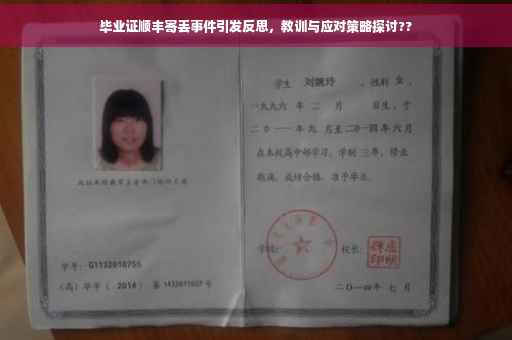 毕业证顺丰寄丢事件引发反思，教训与应对策略探讨??
学生 刘婉玲 ，性别 女 ，
一九九六 年 二 月 日生，于
二〇一一年 九 月至二〇一四年 六 月
在本校高中部学习，学制 三年，修业
期满，成绩合格，准予毕业。
学校：
校长：
学号：G1132010755
（高）毕字（ 2014 ）第 1432011027 号
二〇一四年 七 月